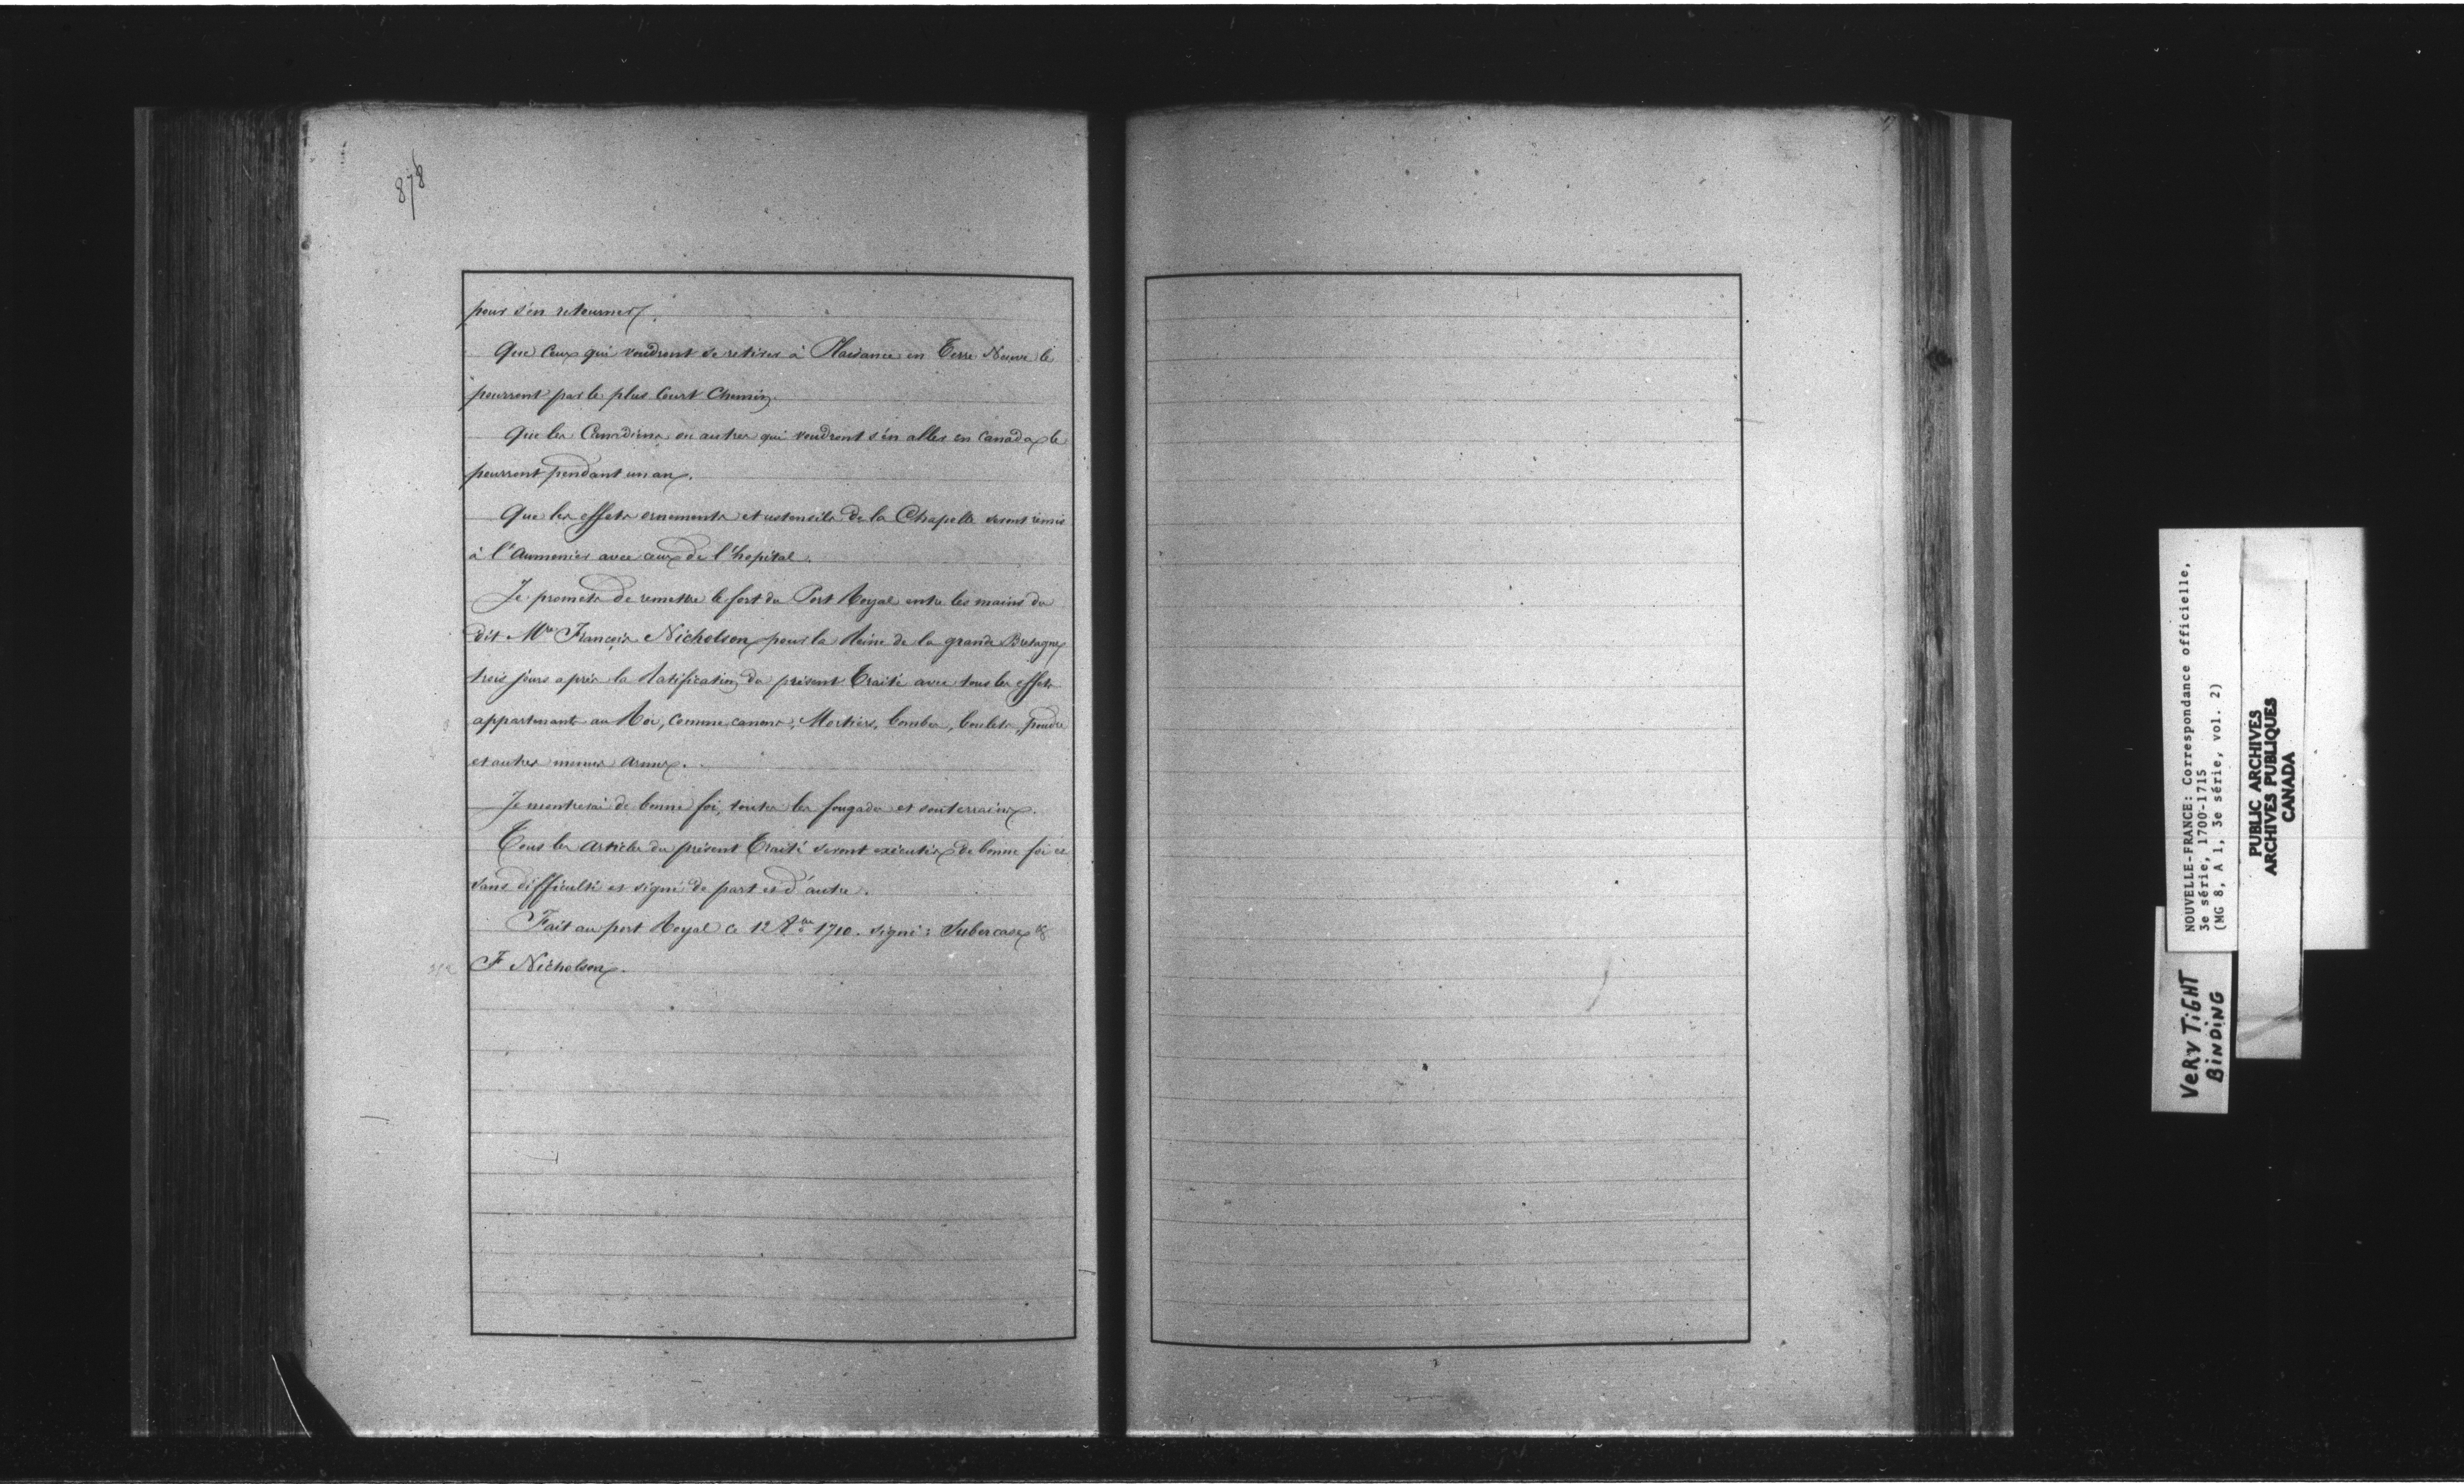 878
pour s'en retourner.
Que ceux qui voudront se retirer à Plaisance en Terre Neuve le
pourront par le plus court Chemin.
Que les Canadiens ou autres qui voudront s'en aller en Canada le
pourront pendant un an.
Que les effets ornements et ustensils de la Chapelle seront remis
à l'Aumonier avec ceux de l'hopital.
Je promets de remettre le fort du Port Royal entre les mains du
dit Mre François Nicholson pour la Reine de la grande Bretagne
trois jours après la Ratification du présent Traité avec tous les effets
appartenants au Roi, comme canons, Mortiers, bombes, boulets, poudre
et autres menues armes.
Je montrerai de bonne foi, toutes les fougades et souterrains.
Tous les Articles du présent Traité seront exécutés de bonne foi et
sans difficulté et signé de part et d'autre.
Fait au port Royal ce 12 8bre 1710. Signé: Subercase &
F Nicholson.
NOUVELLE-FRANCE: Correspondance officielle,
3e série, 1700-1715
(MG 8, A 1, 3e série, vol. 2)
PUBLIC ARCHIVES
ARCHIVES PUBLIQUES
CANADA
VERY TiGHT
BiNDiNG